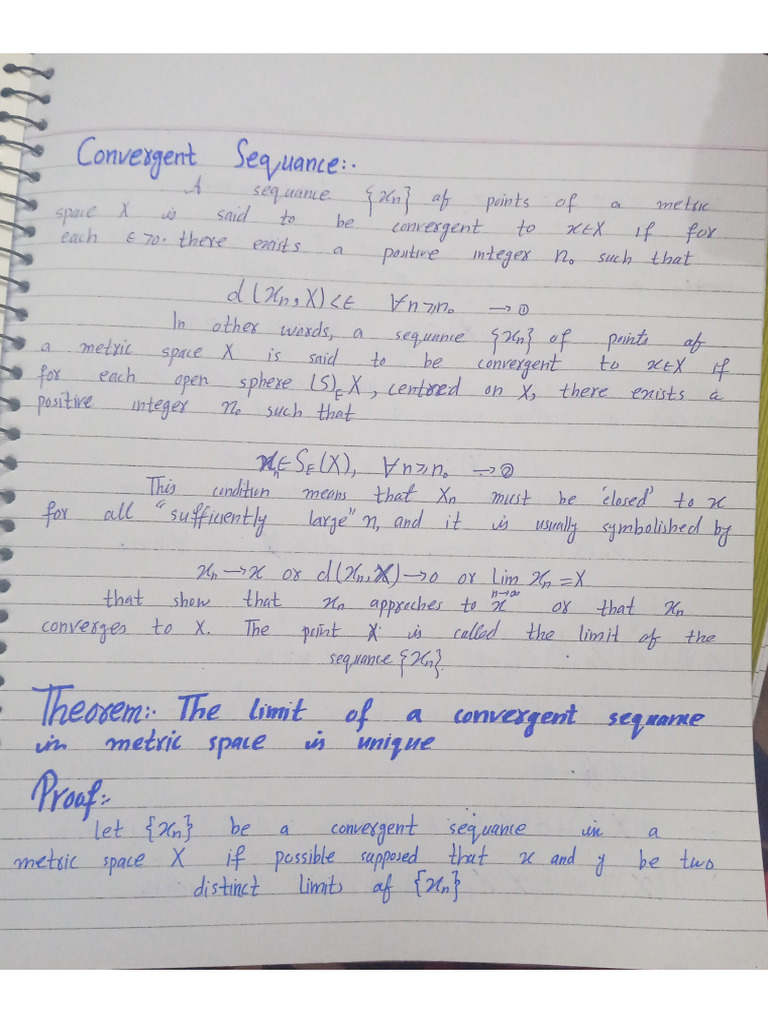 Convergent Sequance:.
A sequance {xn} af points of a metric
space X is said to be convergent to x∈X if for
each ∈>0. there exists a positive integer n₀ such that
d(xn, X)<∈ ∀n≥n₀ → ①
In other words, a sequance {xn} of points af
a metric space X is said to be convergent to x∈X if
for each open sphere (S)∈X, centred on X, there exists a
positive integer n₀ such that
xn∈S∈(X), ∀n≥n₀ → ②
This condition means that Xn must be 'closed' to x
for all "sufficiently large" n, and it is usually symbolished by
xn→x or d(xn, X)→0 or lim xn = X
n→∞
that show that xn appreches to x or that xn
converges to X. The point X is called the limit of the
sequance {xn}.
Theorem:. The limit of a convergent sequance
in metric space is unique
Proaf:.
let {xn} be a convergent sequance in a
metric space X if possible supposed that x and y be two
distinct limits af {xn}